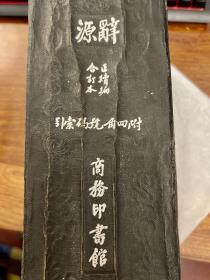 辭源
正續編
合訂本
附四角號碼索引
商務印書館